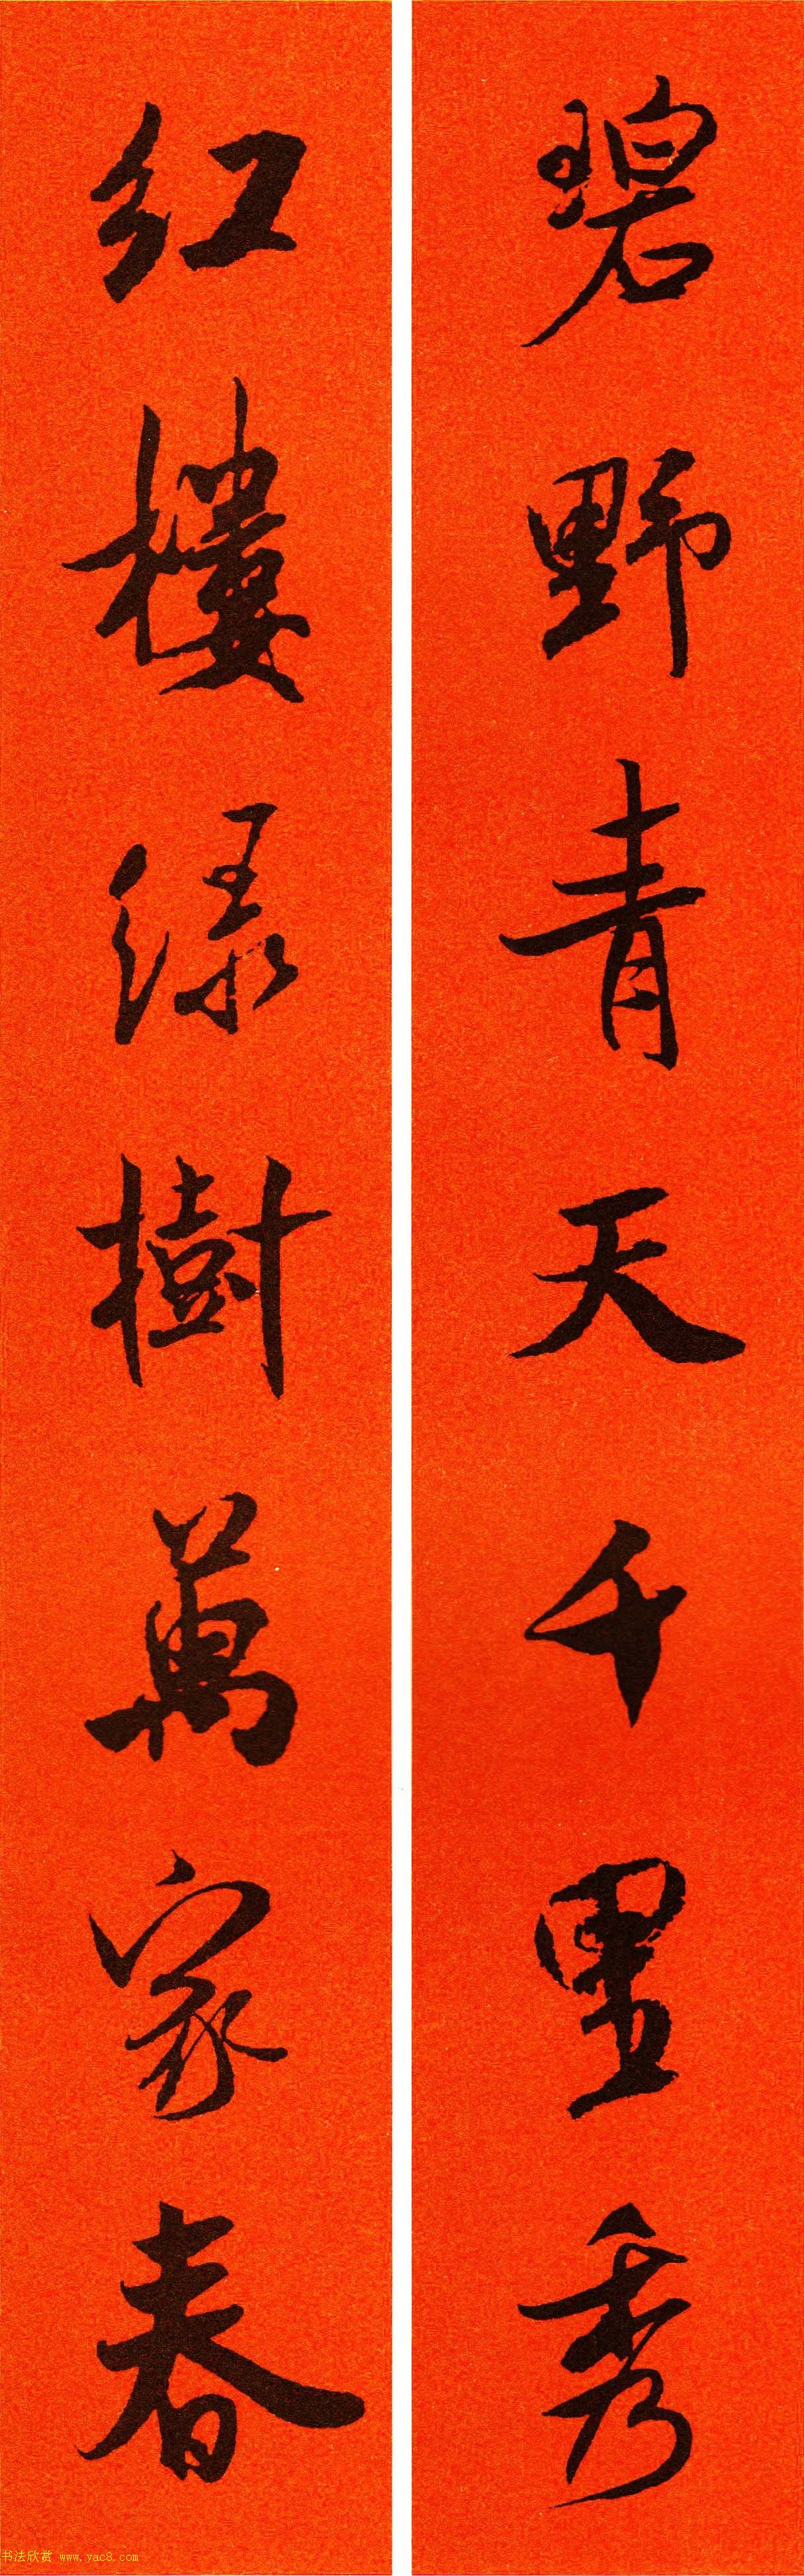 碧野青天千里秀
红楼绿樹萬家春
书法欣赏 www.yac8.com